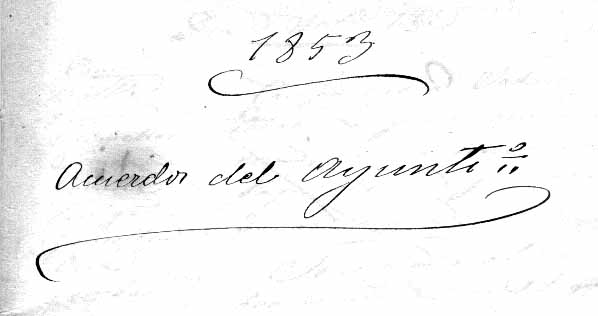 1853
Acuerdos del Ayunt.º